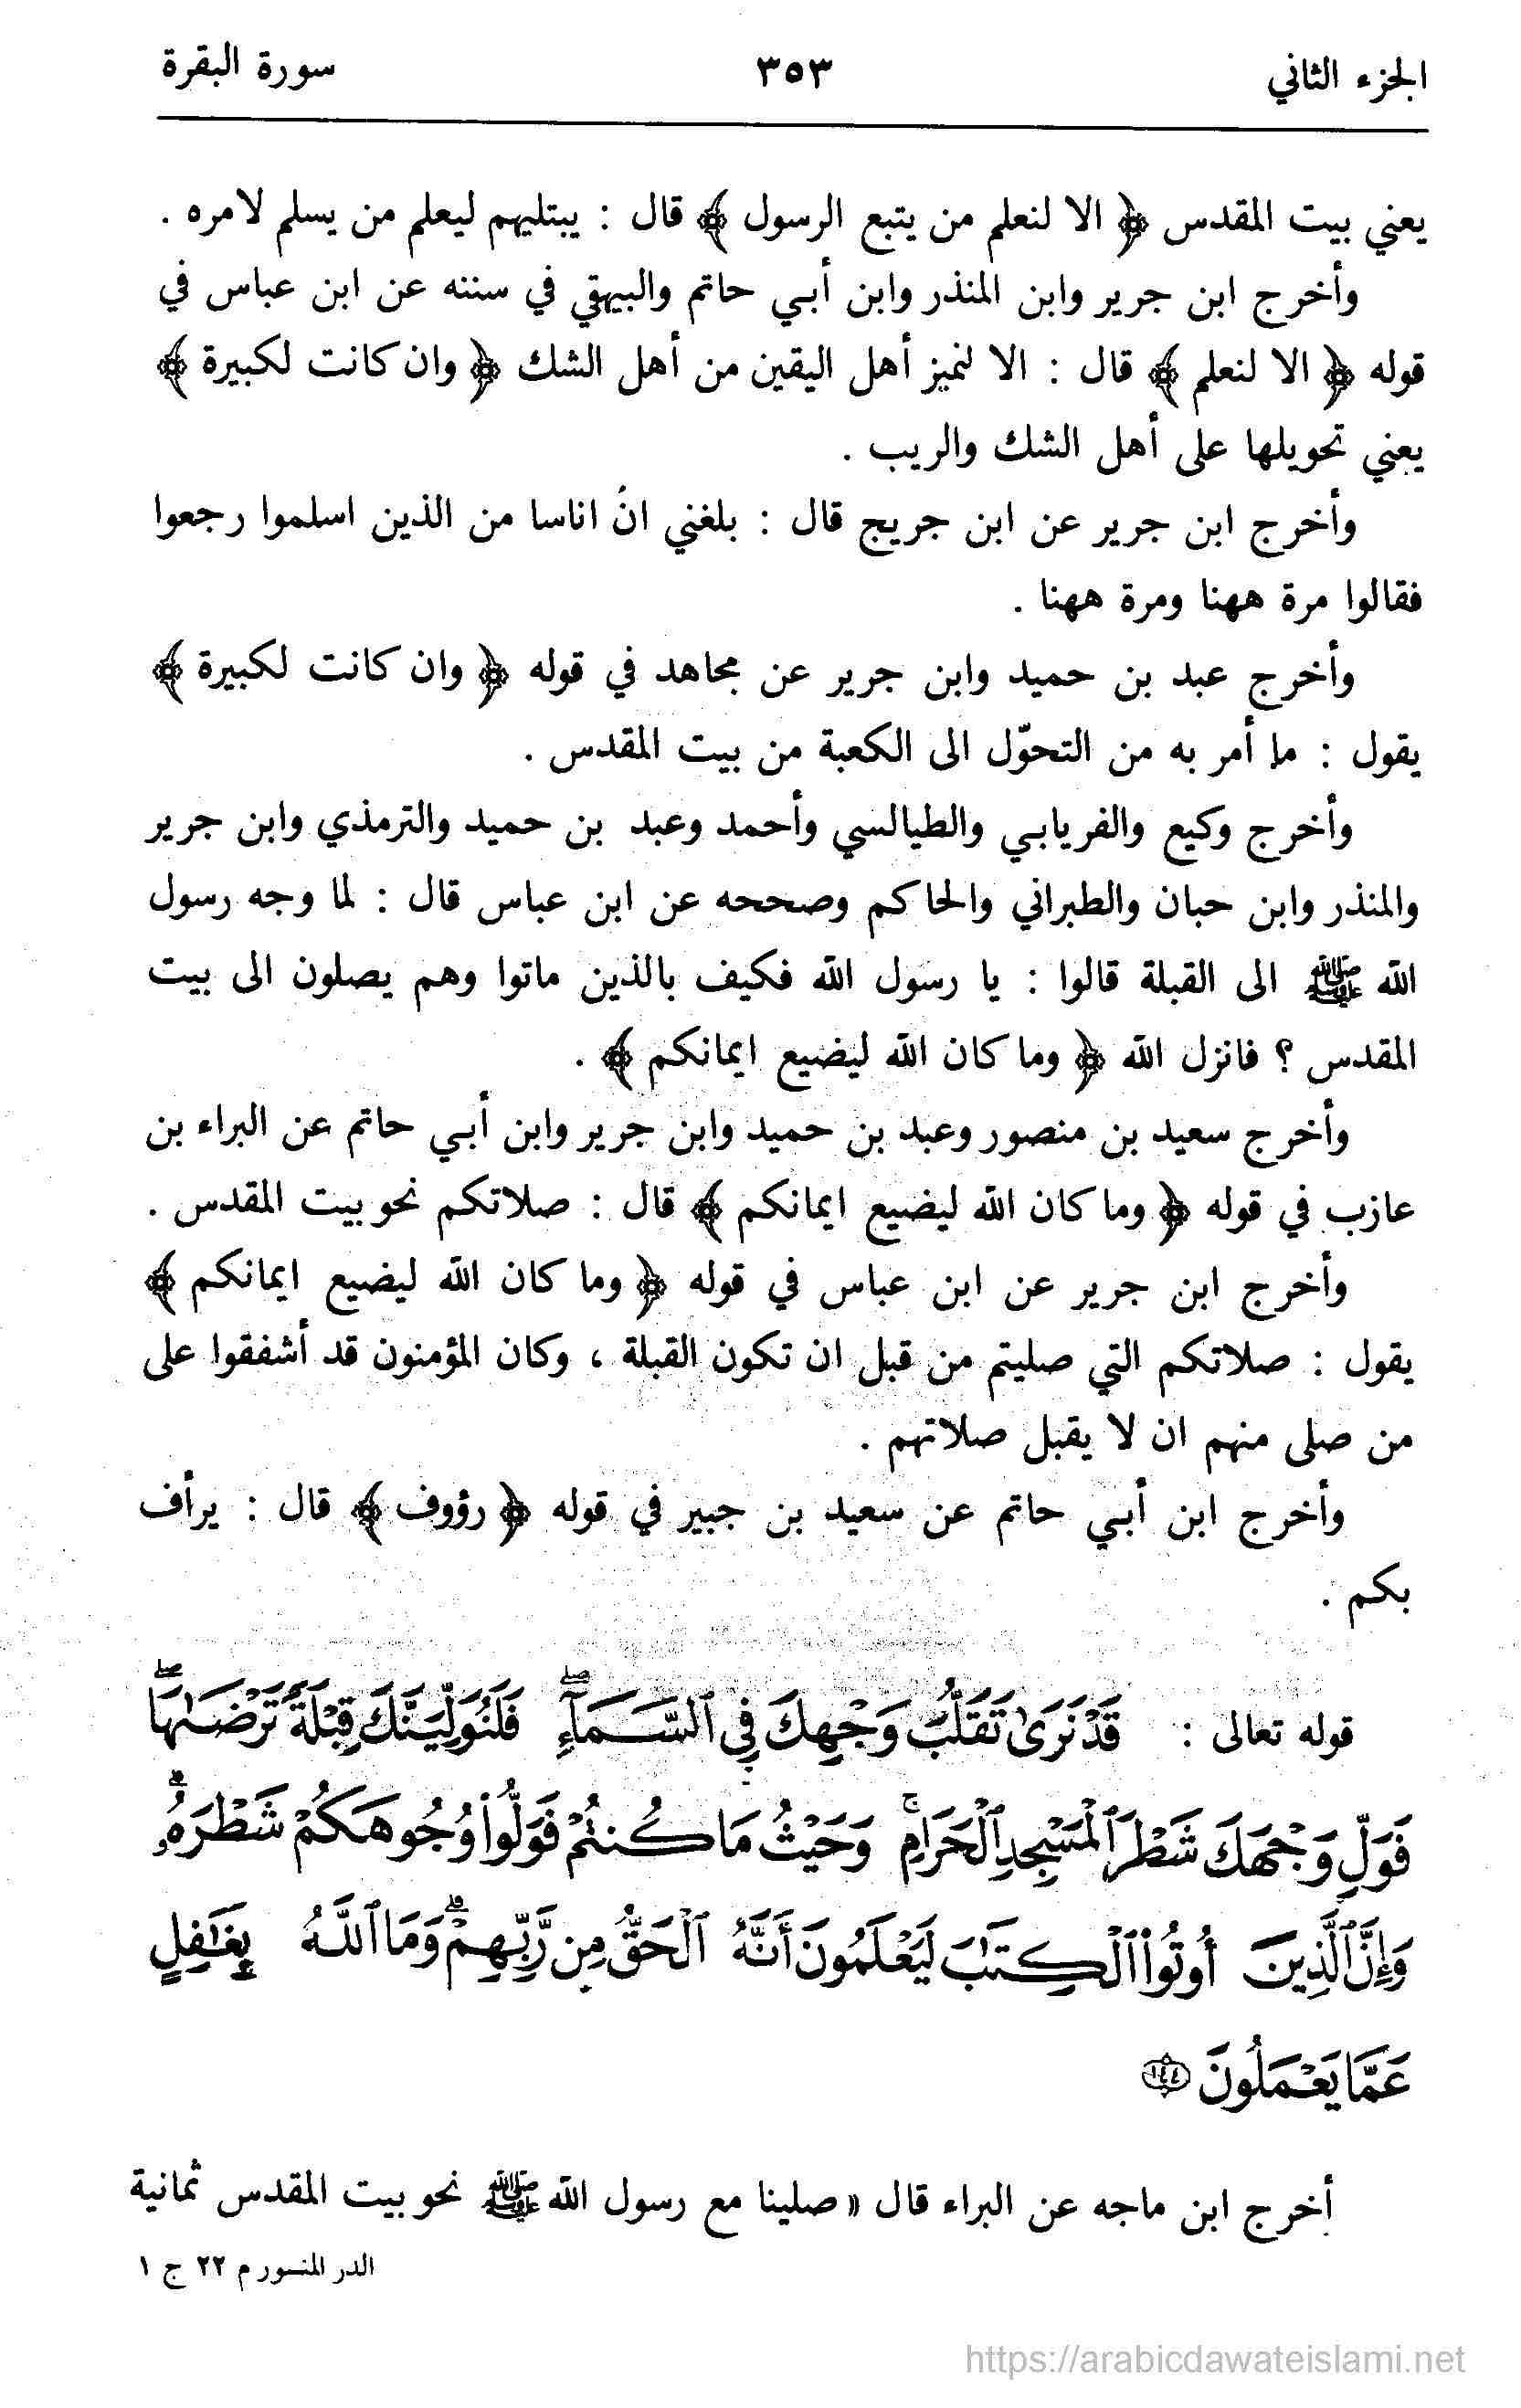 الجزء الثاني ٣٥٣ سورة البقرة
يعني بيت المقدس ﴿ الا لنعلم من يتبع الرسول ﴾ قال : يبتليهم ليعلم من يسلم لامره .
وأخرج ابن جرير وابن المنذر وابن أبي حاتم والبيهقي في سننه عن ابن عباس في
قوله ﴿ الا لنعلم ﴾ قال : الا لنميز أهل اليقين من أهل الشك ﴿ وان كانت لكبيرة ﴾
يعني تحويلها على أهل الشك والريب .
وأخرج ابن جرير عن ابن جريج قال : بلغني انُ اناسا من الذين اسلموا رجعوا
فقالوا مرة ههنا ومرة ههنا .
وأخرج عبد بن حميد وابن جرير عن مجاهد في قوله ﴿ وان كانت لكبيرة ﴾
يقول : ما أمر به من التحوّل الى الكعبة من بيت المقدس .
وأخرج وكيع والفريابي والطيالسي وأحمد وعبد بن حميد والترمذي وابن جرير
والمنذر وابن حبان والطبراني والحاكم وصححه عن ابن عباس قال : لما وجه رسول
الله ﷺ الى القبلة قالوا : يا رسول الله فكيف بالذين ماتوا وهم يصلون الى بيت
المقدس ؟ فانزل الله ﴿ وما كان الله ليضيع ايمانكم ﴾ .
وأخرج سعيد بن منصور وعبد بن حميد وابن جرير وابن أبي حاتم عن البراء بن
عازب في قوله ﴿ وما كان الله ليضيع ايمانكم ﴾ قال : صلاتكم نحو بيت المقدس .
وأخرج ابن جرير عن ابن عباس في قوله ﴿ وما كان الله ليضيع ايمانكم ﴾
يقول : صلاتكم التي صليتم من قبل ان تكون القبلة ، وكان المؤمنون قد أشفقوا على
من صلى منهم ان لا يقبل صلاتهم .
وأخرج ابن أبي حاتم عن سعيد بن جبير في قوله ﴿ رؤوف ﴾ قال : يرأف
بكم .
قوله تعالى : قَدْ نَرَىٰ تَقَلُّبَ وَجْهِكَ فِي ٱلسَّمَآءِۖ فَلَنُوَلِّيَنَّكَ قِبْلَةً تَرْضَىٰهَاۖ
فَوَلِّ وَجْهَكَ شَطْرَ ٱلْمَسْجِدِ ٱلْحَرَامِۚ وَحَيْثُ مَا كُنتُمْ فَوَلُّوا۟ وُجُوهَكُمْ شَطْرَهُۥۗ
وَإِنَّ ٱلَّذِينَ أُوتُوا۟ ٱلْكِتَٰبَ لَيَعْلَمُونَ أَنَّهُ ٱلْحَقُّ مِن رَّبِّهِمْۗ وَمَا ٱللَّهُ بِغَٰفِلٍ
عَمَّا يَعْمَلُونَ ١٤٤
أخرج ابن ماجه عن البراء قال « صلينا مع رسول الله ﷺ نحو بيت المقدس ثمانية
الدر المنسور م ٢٢ ج ١
https://arabicdawateislami.net